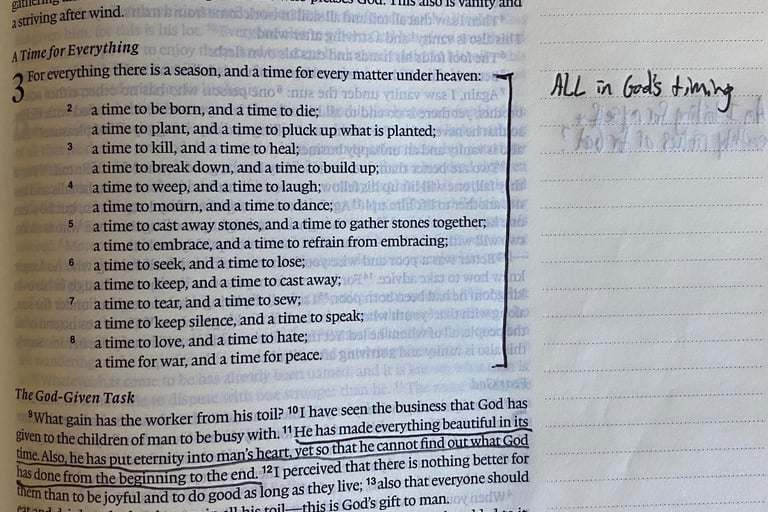 gathering pleases God. This also is vanity and
a striving after wind.
A Time for Everything
3 For everything there is a season, and a time for every matter under heaven:
ALL in God's timing
2 a time to be born, and a time to die;
a time to plant, and a time to pluck up what is planted;
3 a time to kill, and a time to heal;
a time to break down, and a time to build up;
4 a time to weep, and a time to laugh;
a time to mourn, and a time to dance;
5 a time to cast away stones, and a time to gather stones together;
a time to embrace, and a time to refrain from embracing;
6 a time to seek, and a time to lose;
a time to keep, and a time to cast away;
7 a time to tear, and a time to sew;
a time to keep silence, and a time to speak;
8 a time to love, and a time to hate;
a time for war, and a time for peace.
The God-Given Task
9 What gain has the worker from his toil? 10 I have seen the business that God has
given to the children of man to be busy with. 11 He has made everything beautiful in its
time. Also, he has put eternity into man's heart, yet so that he cannot find out what God
has done from the beginning to the end. 12 I perceived that there is nothing better for
them than to be joyful and to do good as long as they live; 13 also that everyone should
all his toil—this is God's gift to man.